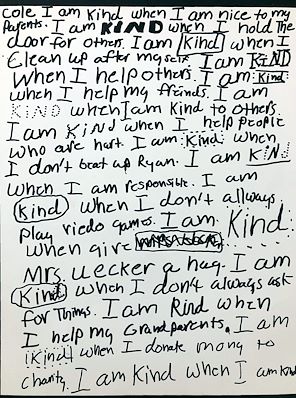 cole I am kind when I am nice to my
Parents. I am KIND when I hold the
door for others. I am kind when I
Clean up after my self. I am KIND
When I help others. I am kind
when I help my friends. I am
KIND when I am kind to others.
I am KIND when I help people
who are hart. I am kind when
I don't beat up Ryan. I am KIND
when I am responsible. I am
kind when I don't allways
Play viedo games. I am kind
when give
Mrs. Uecker a hug. I am
Kind when I don't always ask
for Things. I am Kind when
I help my Grandparents. I am
Kind when I donate mony to
charity. I am Kind when I am kind